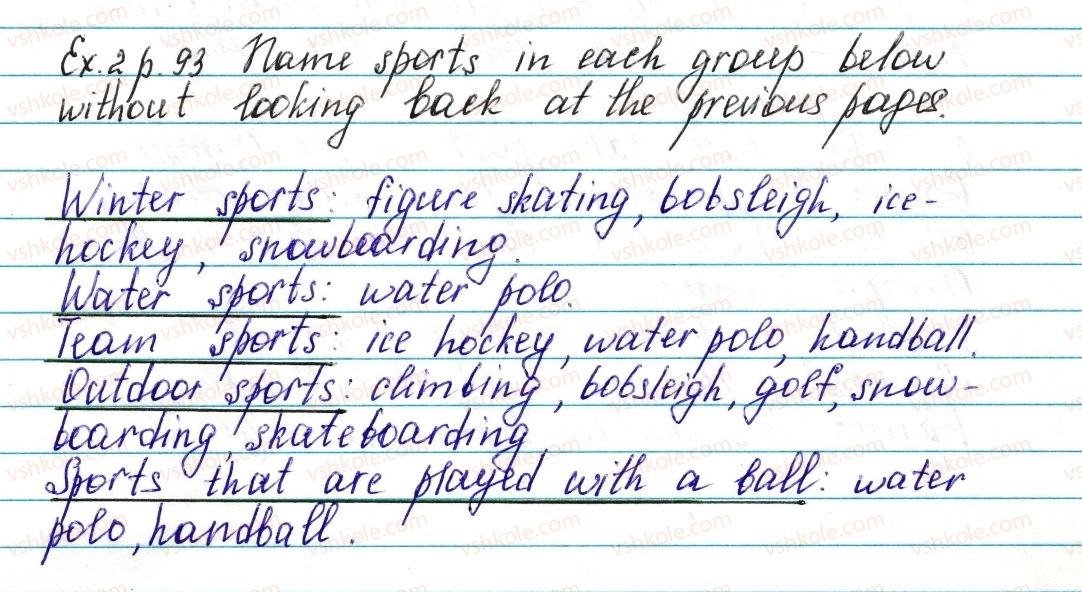 Ex. 2 p. 93 Name sports in each group below
without looking back at the previous pages.
Winter sports: figure skating, bobsleigh, ice-
hockey, snowboarding.
Water sports: water polo.
Team sports: ice hockey, water polo, handball.
Outdoor sports: climbing, bobsleigh, golf, snow-
boarding, skateboarding
Sports that are played with a ball: water
polo, handball.